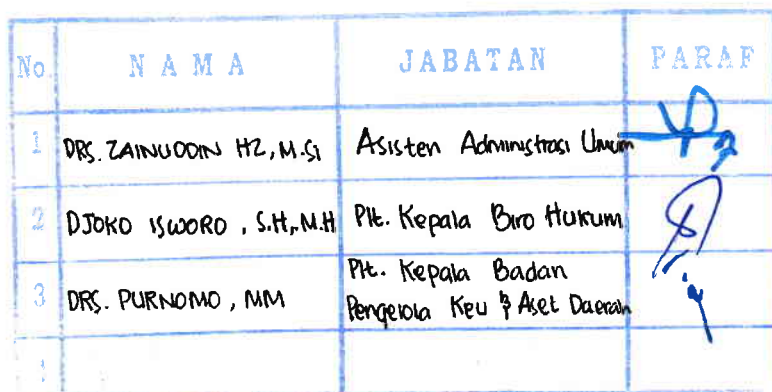 No N A M A JABATAN PARAF
1 DRS. ZAINUDDIN HZ, M.Si Asisten Administrasi Umum
2 DJOKO ISWORO, S.H, M.H Plt. Kepala Biro Hukum
3 DRS. PURNOMO, MM Plt. Kepala Badan
Pengelola Keu & Aset Daerah